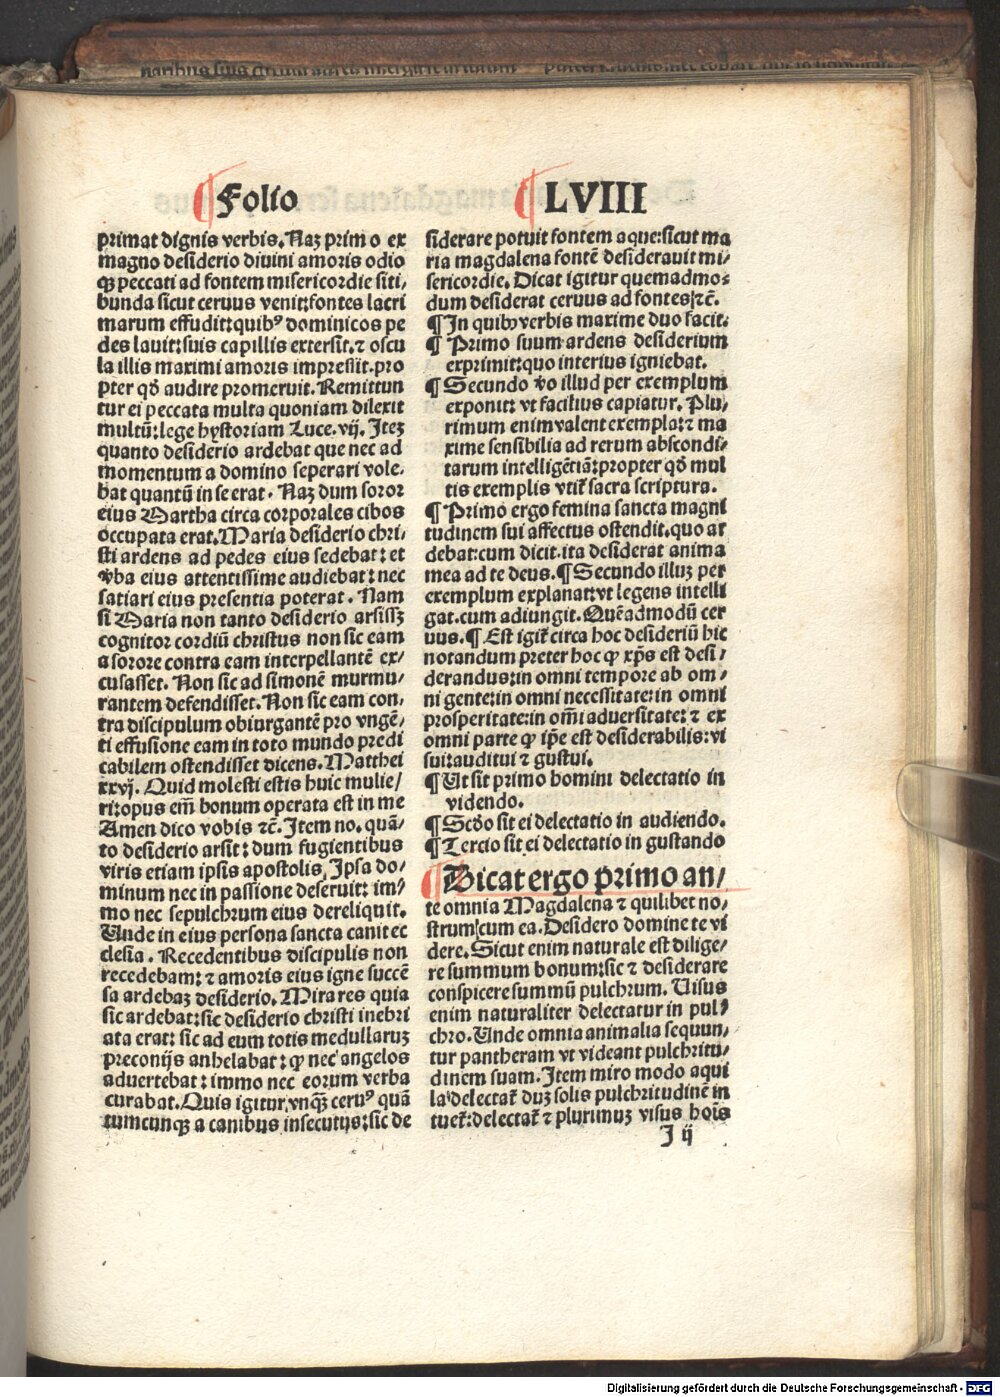 ¶ Folio
¶ LVIII
primat dignis verbis. Naʒ prim o ex
magno desiderio divini amoris odio
qꝫ peccati ad fontem misericordie siti/
bunda sicut ceruus venit: fontes lacri
marum effudit: quibꝰ dominicos pe
des lauit: suis capillis extersit. ⁊ oscu
la illis maximi amoris impressit. pro
pter qď audire promeruit. Remittun
tur ei peccata multa quoniam dilexit
multū: lege hystoriam Luce. vij. Iteʒ
quanto desiderio ardebat que nec ad
momentum a domino seperari vole.
bat quantū in se erat. Naʒ dum soror
eius Martha circa corporales cibos
occupata erat. Maria desiderio chri/
sti ardens ad pedes eius sedebat: et
v̄ba eius attentissime audiebat: nec
satiari eius presentia poterat. Nam
si Maria non tanto desiderio arsissꝫ
cognitor cordiū christus non sic eam
a sorore contra eam interpellantē ex/
cusasset. Non sic ad simonē murmu/
rantem defendisset. Non sic eam con/
tra discipulum obiurgantē pro vngē/
ti effusione eam in toto mundo predi
cabilem ostendisset dicens. Matthei
xxvj. Quid molesti estis huic mulie/
ri: opus em̄ bonum operata est in me
Amen dico vobis ⁊c̄. Item no. quā/
to desiderio arsit: dum fugientibus
viris etiam ipsis apostolis, Ipsa do/
minum nec in passione deseruit: im/
mo nec sepulchrum eius dereliquit.
Unde in eius persona sancta canit ec
clesia. Recedentibus discipulis non
recedebam: ⁊ amoris eius igne succē
sa ardebaʒ desiderio. Mira res quia
sic ardebat: sic desiderio christi inebri
ata erat: sic ad eum totis medullaruʒ
preconijs anhelabat: ꝙ nec angelos
aduertebat: immo nec eorum verba
curabat. Quis igitur vnqꝫ ceruꝰ quā
tumcunqꝫ a canibus insecutus: sic de
siderare potuit fontem aque: sicut ma
ria magdalena fontē desiderauit mi/
sericordie. Dicat igitur quemadmo/
dum desiderat ceruus ad fontes ⁊c̄.
¶ In quibꝫ verbis maxime duo facit.
¶ Primo suum ardens desiderium
exprimit: quo interius igniebat.
¶ Secundo v̄o illud per exemplum
exponit: vt facilius capiatur. Plu/
rimum enim valent exempla: ⁊ ma
xime sensibilia ad rerum abscondi/
tarum intelligētiā: propter qď mul
tis exemplis vtit̄ sacra scriptura.
¶ Primo ergo femina sancta magni
tudinem sui affectus ostendit. quo ar
debat: cum dicit. ita desiderat anima
mea ad te deus. ¶ Secundo illuʒ per
exemplum explanat: vt legens intelli
gat. cum adiungit. Quēadmodū cer
uus. ¶ Est igit̄ circa hoc desideriū hic
notandum preter hoc ꝙ xp̄s est desi/
derandus: in omni tempore ab om/
ni gente: in omni necessitate: in omni
prosperitate: in om̄i aduersitate: ⁊ ex
omni parte ꝙ ip̄e est desiderabilis: vi
sui: auditui ⁊ gustui.
¶ Ut sit primo homini delectatio in
videndo.
¶ Scďo sit ei delectatio in audiendo.
¶ Tercio sit ei delectatio in gustando
¶ Dicat ergo primo an/
te omnia Magdalena ⁊ quilibet no/
strum cum ea. Desidero domine te vi
dere. Sicut enim naturale est dilige/
re summum bonum: sic ⁊ desiderare
conspicere summū pulchrum. Uisus
enim naturaliter delectatur in pul/
chro. Unde omnia animalia sequun/
tur pantheram vt videant pulchritu/
dinem suam. Item miro modo aqui
la delectat̄ duʒ solis pulchritudinē in
tuet̄: delectat̄ ⁊ plurimuʒ visus hoīs
I ij
Digitalisierung gefördert durch die Deutsche Forschungsgemeinschaft - DFG